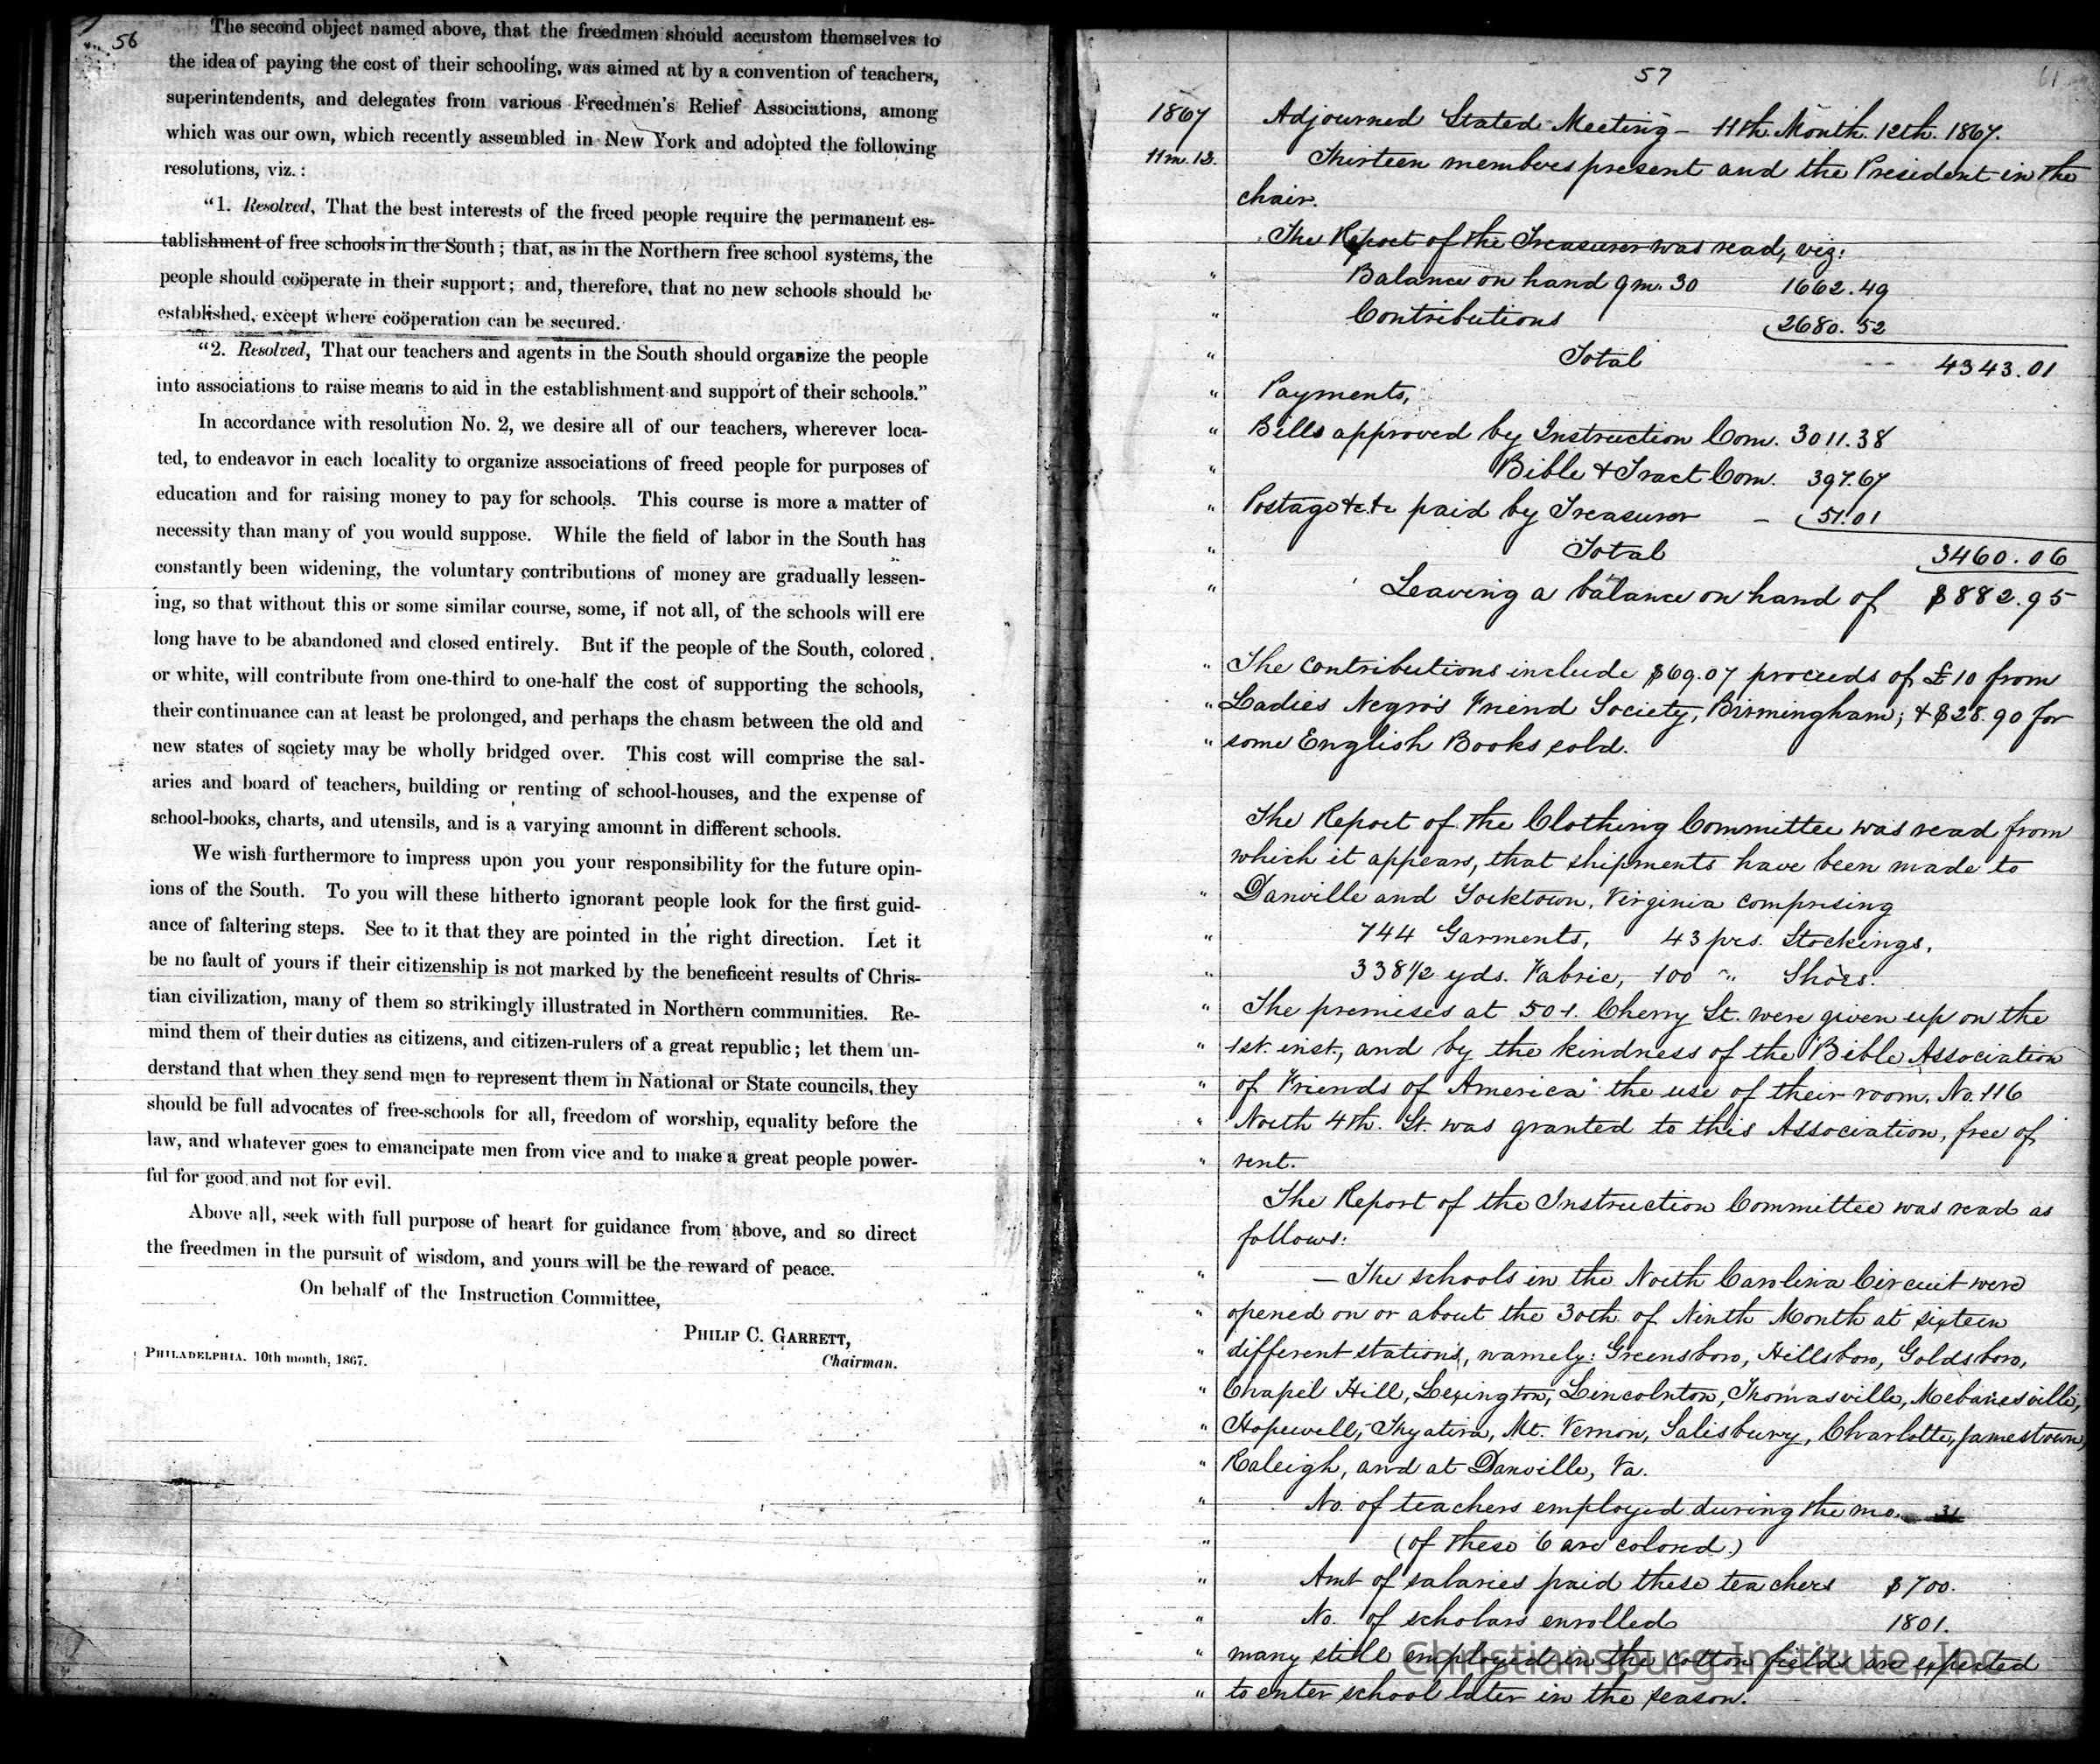 56
The second object named above, that the freedmen should accustom themselves to
the idea of paying the cost of their schooling, was aimed at by a convention of teachers,
superintendents, and delegates from various Freedmen's Relief Associations, among
which was our own, which recently assembled in New York and adopted the following
resolutions, viz.:
"1. Resolved, That the best interests of the freed people require the permanent es-
tablishment of free schools in the South; that, as in the Northern free school systems, the
people should coöperate in their support; and, therefore, that no new schools should be
established, except where coöperation can be secured.
"2. Resolved, That our teachers and agents in the South should organize the people
into associations to raise means to aid in the establishment and support of their schools."
In accordance with resolution No. 2, we desire all of our teachers, wherever loca-
ted, to endeavor in each locality to organize associations of freed people for purposes of
education and for raising money to pay for schools. This course is more a matter of
necessity than many of you would suppose. While the field of labor in the South has
constantly been widening, the voluntary contributions of money are gradually lessen-
ing, so that without this or some similar course, some, if not all, of the schools will ere
long have to be abandoned and closed entirely. But if the people of the South, colored
or white, will contribute from one-third to one-half the cost of supporting the schools,
their continuance can at least be prolonged, and perhaps the chasm between the old and
new states of society may be wholly bridged over. This cost will comprise the sal-
aries and board of teachers, building or renting of school-houses, and the expense of
school-books, charts, and utensils, and is a varying amount in different schools.
We wish furthermore to impress upon you your responsibility for the future opin-
ions of the South. To you will these hitherto ignorant people look for the first guid-
ance of faltering steps. See to it that they are pointed in the right direction. Let it
be no fault of yours if their citizenship is not marked by the beneficent results of Chris-
tian civilization, many of them so strikingly illustrated in Northern communities. Re-
mind them of their duties as citizens, and citizen-rulers of a great republic; let them un-
derstand that when they send men to represent them in National or State councils, they
should be full advocates of free-schools for all, freedom of worship, equality before the
law, and whatever goes to emancipate men from vice and to make a great people power-
ful for good and not for evil.
Above all, seek with full purpose of heart for guidance from above, and so direct
the freedmen in the pursuit of wisdom, and yours will be the reward of peace.
On behalf of the Instruction Committee,
PHILIP C. GARRETT,
Chairman.
PHILADELPHIA. 10th month, 1867.
57
61
1867 Adjourned Stated Meeting - 11th. Month. 12th. 1867.
11m.12. Thirteen members present and the President in the
chair.
The Report of the Treasurer was read, viz:
" Balance on hand 9m. 30 1662.49
" Contributions 2680.52
" Total 4343.01
" Payments,
" Bills approved by Instruction Com. 3011.38
" Bible & Tract Com. 397.67
" Postage &c. &c paid by Treasurer - 51.01
" Total 3460.06
" Leaving a balance on hand of $882.95
" The contributions include $69.07 proceeds of £10 from
" Ladies Negro's Friend Society, Birmingham; & $28.90 for
" some English Books sold.
The Report of the Clothing Committee was read from
which it appears, that shipments have been made to
" Danville and Yorktown, Virginia comprising
" 744 Garments, 43 prs. Stockings,
" 338½ yds. Fabric, 100 " Shoes.
" The premises at 501. Cherry St. were given up on the
" 1st. inst., and by the kindness of the "Bible Association
" of Friends of America" the use of their room, No. 116
" North 4th. St. was granted to this Association, free of
" rent.
The Report of the Instruction Committee was read as
follows:
" — The schools in the North Carolina Circuit were
" opened on or about the 30th of Ninth Month at sixteen
" different stations, namely: Greensboro, Hillsboro, Goldsboro,
" Chapel Hill, Lexington, Lincolnton, Thomasville, Mebanesville,
" Hopewell, Thyatira, Mt. Vernon, Salisbury, Charlotte, Jamestown,
" Raleigh, and at Danville, Va.
" No. of teachers employed during the mo. 31
" (of these 6 are colored.)
" Amt of salaries paid these teachers $700.
" No. of scholars enrolled 1801.
" many still employed in the cotton fields are expected
" to enter school later in the season.
Christiansburg Institute, Inc.